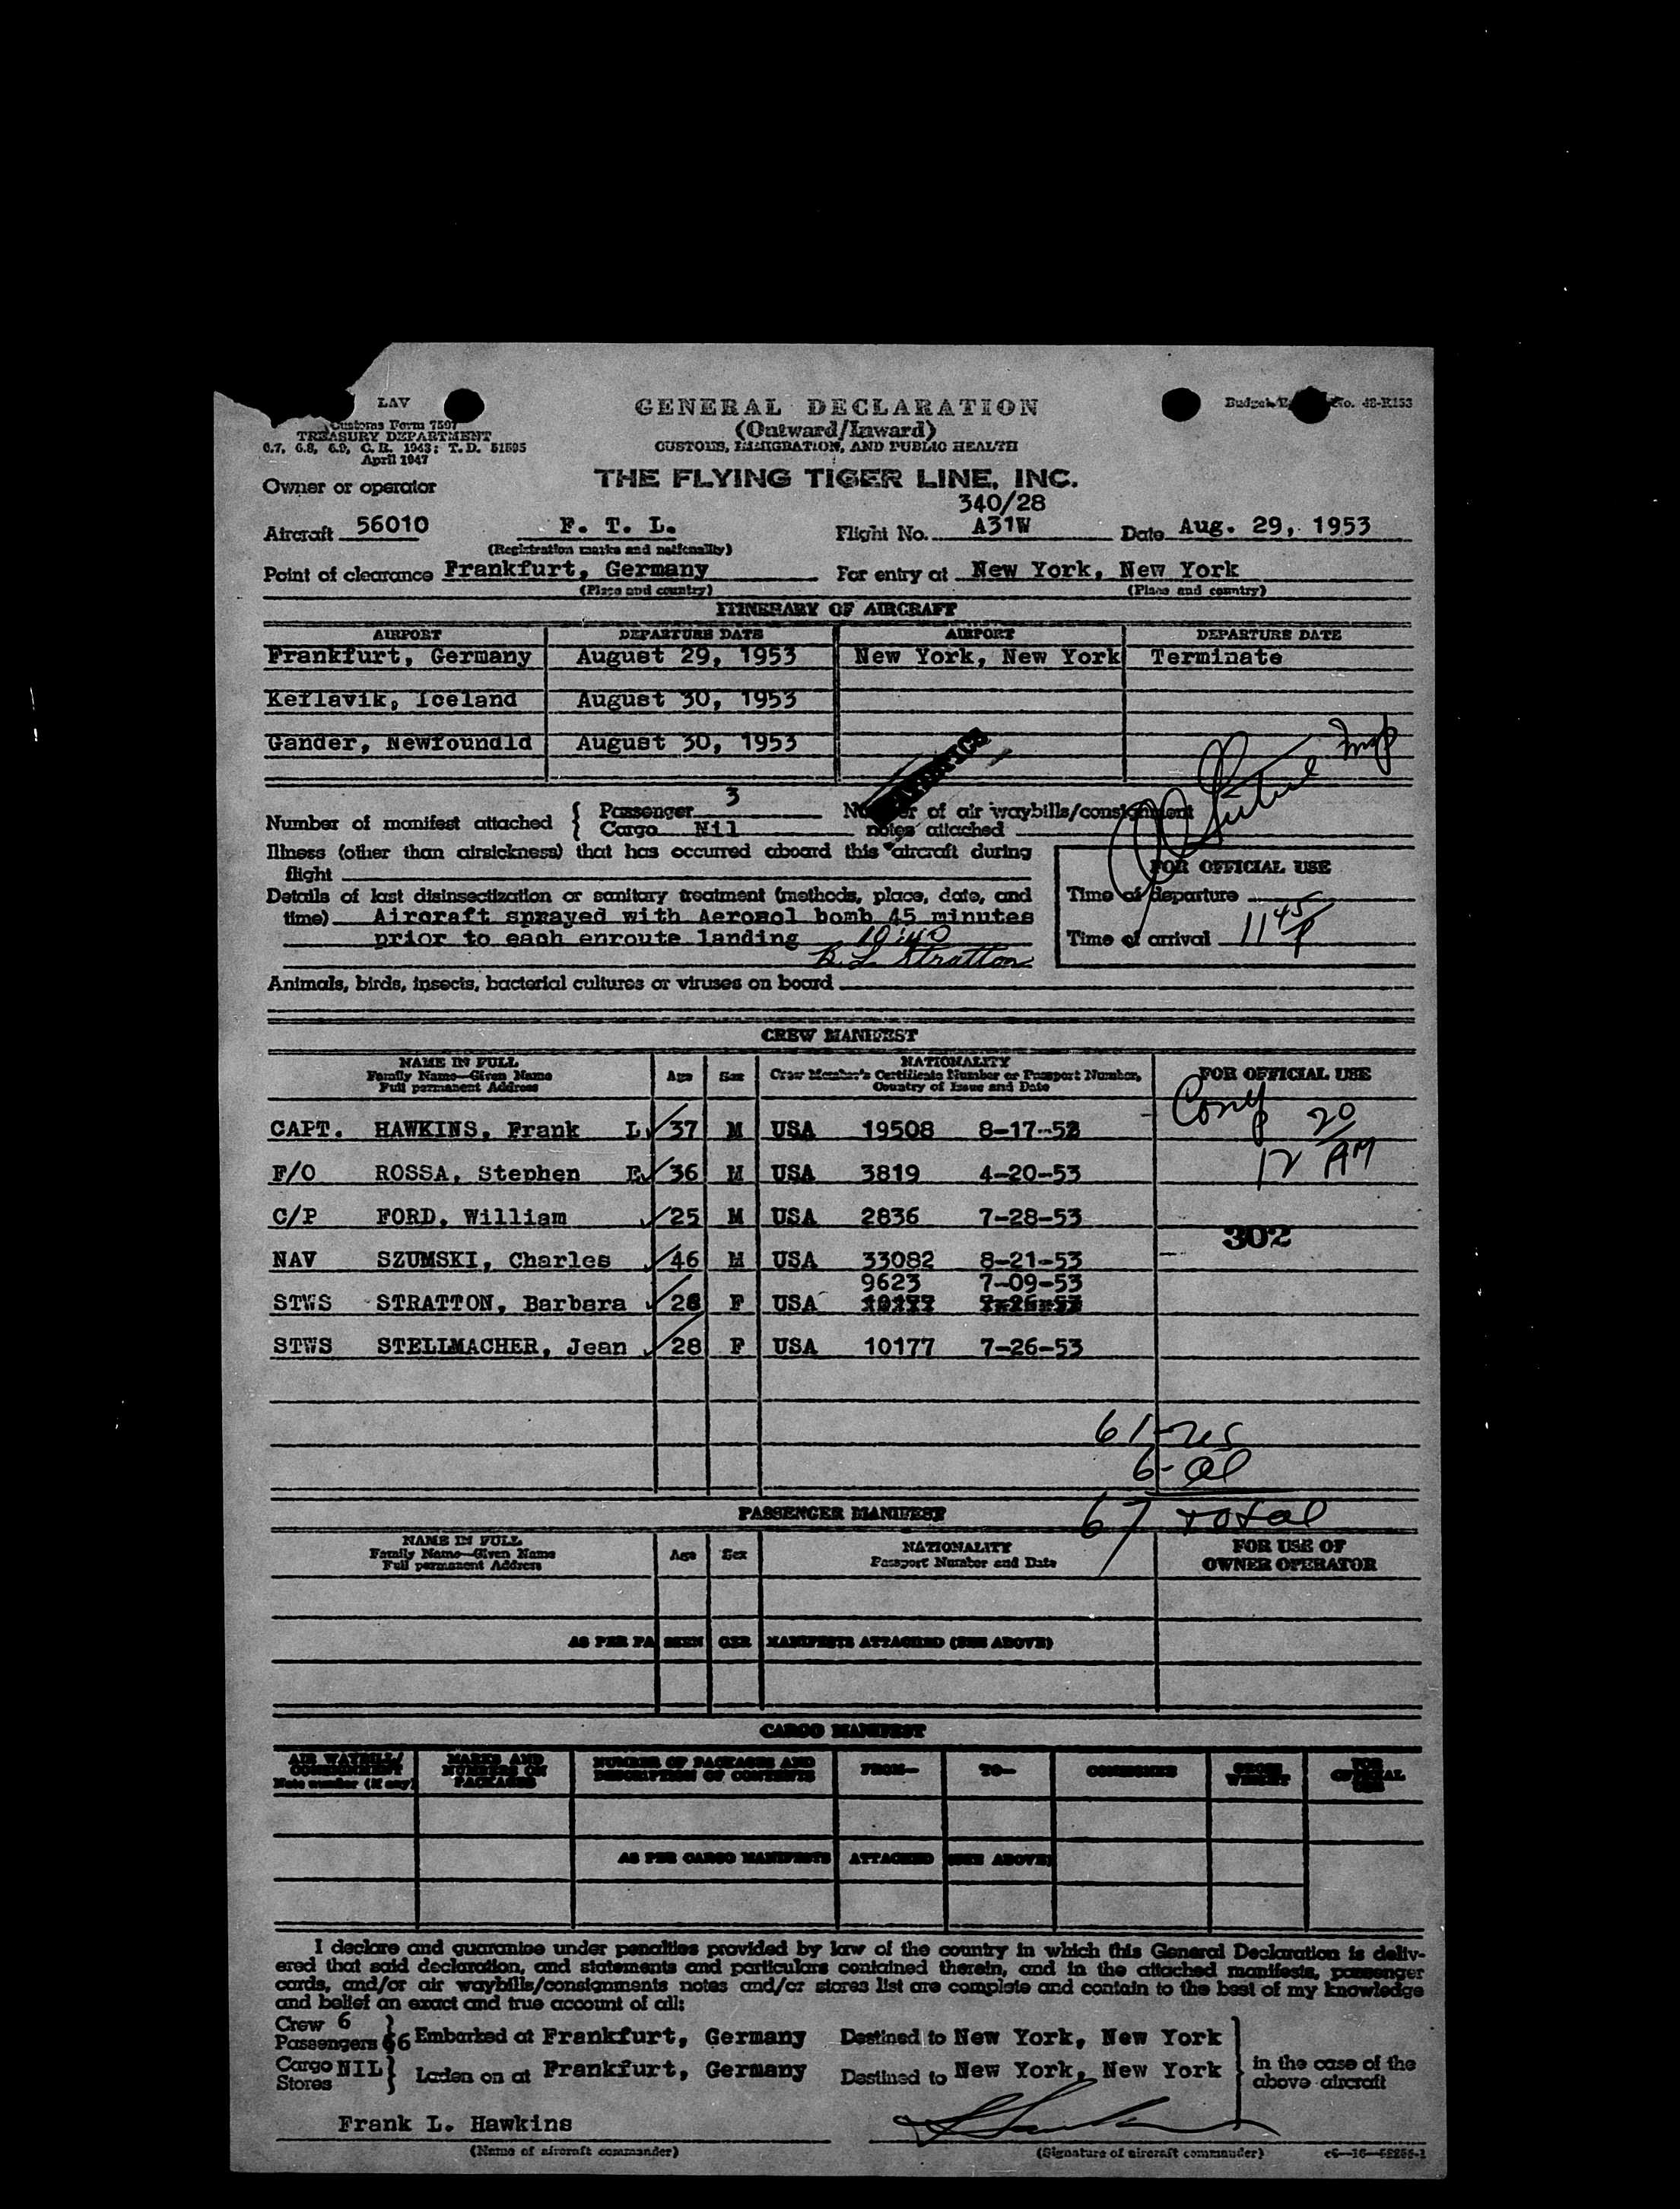 LAV
Customs Form 7507
TREASURY DEPARTMENT
6.7, 6.8, 6.9, C. R. 1943; T. D. 51595
April 1947
GENERAL DECLARATION
(Outward/Inward)
CUSTOMS, IMMIGRATION, AND PUBLIC HEALTH
Budget No. 48-R153
Owner or operator THE FLYING TIGER LINE, INC.
340/28
Aircraft 56010 F. T. L. Flight No. A31W Date Aug. 29, 1953
(Registration marks and nationality)
Point of clearance Frankfurt, Germany For entry at New York, New York
(Place and country) (Place and country)
ITINERARY OF AIRCRAFT
AIRPORT DEPARTURE DATE AIRPORT DEPARTURE DATE
Frankfurt, Germany August 29, 1953 New York, New York Terminate
Keflavik, Iceland August 30, 1953
Gander, Newfoundld August 30, 1953
Number of manifest attached { Passenger 3
Cargo Nil
Number of air waybills/consignment
notes attached
Illness (other than airsickness) that has occurred aboard this aircraft during
flight
FOR OFFICIAL USE
Details of last disinsectization or sanitary treatment (methods, place, date, and
time) Aircraft sprayed with Aerosol bomb 45 minutes
prior to each enroute landing 10:40
B. L. Stratton
Time of departure
Time of arrival 11 45 P
Animals, birds, insects, bacterial cultures or viruses on board
CREW MANIFEST
NAME IN FULL
Family Name—Given Name
Full permanent Address
Age Sex
NATIONALITY
Crew Member's Certificate Number or Passport Number,
Country of Issue and Date
FOR OFFICIAL USE
CAPT. HAWKINS, Frank L. 37 M USA 19508 8-17-52
20
12 AM
F/O ROSSA, Stephen E. 36 M USA 3819 4-20-53
C/P FORD, William 25 M USA 2836 7-28-53
302
NAV SZUMSKI, Charles 46 M USA 33082 8-21-53
9623 7-09-53
STWS STRATTON, Barbara 26 F USA
STWS STELLMACHER, Jean 28 F USA 10177 7-26-53
61-us
6-al
67 total
PASSENGER MANIFEST
NAME IN FULL
Family Name—Given Name
Full permanent Address
Age Sex
NATIONALITY
Passport Number and Date
FOR USE OF
OWNER OPERATOR
AS PER PASSENGER MANIFESTS ATTACHED (SEE ABOVE)
CARGO MANIFEST
AIR WAYBILL/
CONSIGNMENT
Note number (if any)
MARKS AND
NUMBERS ON
PACKAGES
NUMBER OF PACKAGES AND
DESCRIPTION OF CONTENTS
FROM— TO— CONSIGNEE
GROSS
WEIGHT
FOR
OFFICIAL
USE
AS PER CARGO MANIFESTS ATTACHED (SEE ABOVE)
I declare and guarantee under penalties provided by law of the country in which this General Declaration is deliv-
ered that said declaration, and statements and particulars contained therein, and in the attached manifests, passenger
cards, and/or air waybills/consignments notes and/or stores list are complete and contain to the best of my knowledge
and belief an exact and true account of all:
Crew 6
Passengers 66 } Embarked at Frankfurt, Germany Destined to New York, New York
Cargo NIL
Stores } Laden on at Frankfurt, Germany Destined to New York, New York
in the case of the
above aircraft
Frank L. Hawkins
(Name of aircraft commander) (Signature of aircraft commander)